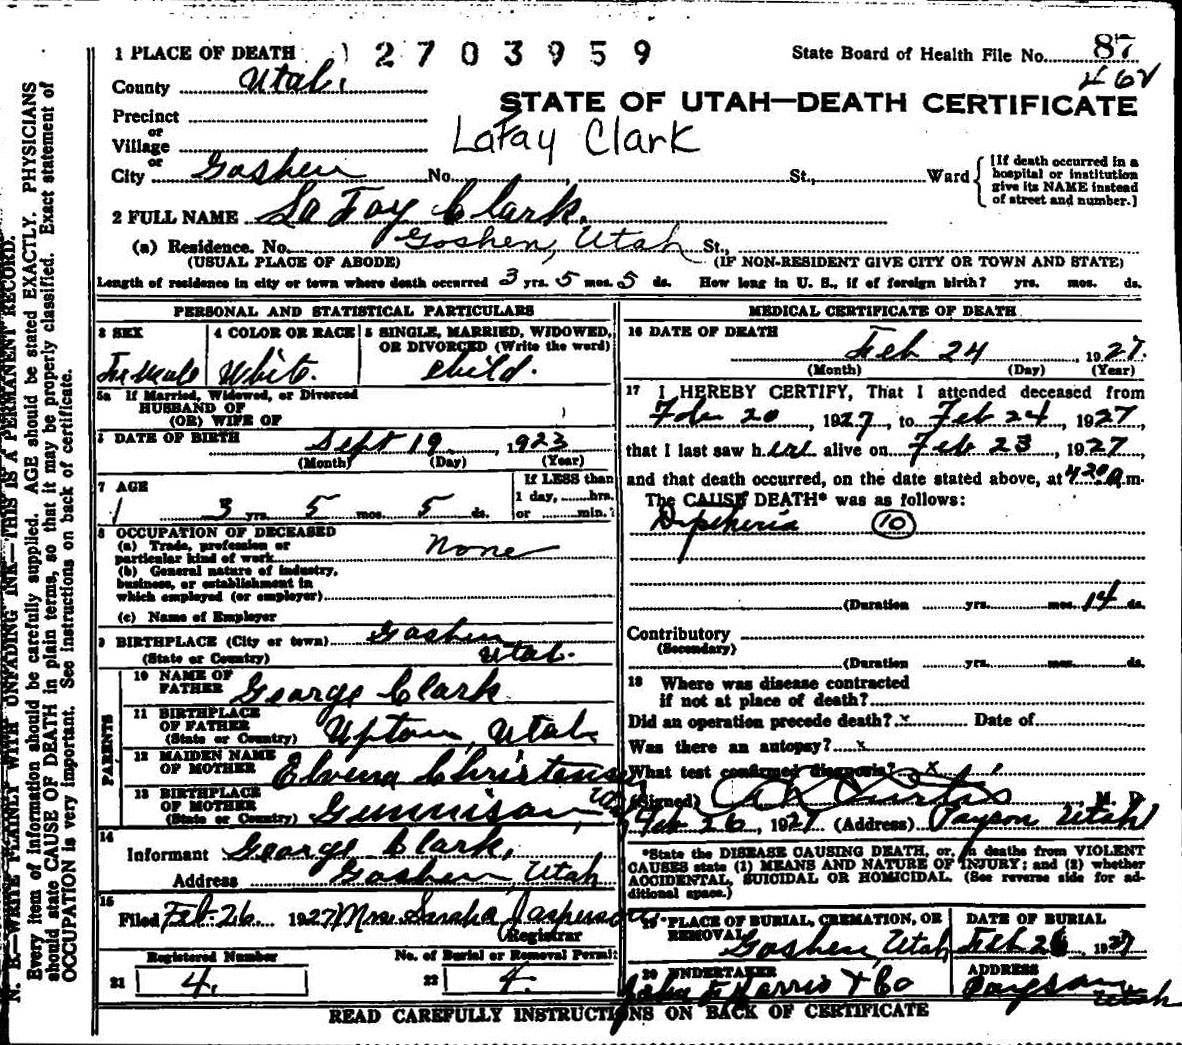 1 PLACE OF DEATH 2703959 State Board of Health File No. 87
County Utah. 462
STATE OF UTAH—DEATH CERTIFICATE
Precinct
or
Village
LaFay Clark
or
City Goshen No. , St., Ward
{If death occurred in a hospital or institution give its NAME instead of street and number.]
2 FULL NAME La Fay Clark.
(a) Residence. No. Goshen, Utah St.,
(USUAL PLACE OF ABODE) (IF NON-RESIDENT GIVE CITY OR TOWN AND STATE)
Length of residence in city or town where death occurred 3 yrs. 5 mos. 5 ds. How long in U. S., if of foreign birth? yrs. mos. ds.
PERSONAL AND STATISTICAL PARTICULARS
3 SEX 4 COLOR OR RACE 5 SINGLE, MARRIED, WIDOWED,
OR DIVORCED (Write the word)
Female White. Child.
5a If Married, Widowed, or Divorced
HUSBAND OF
(OR) WIFE OF
6 DATE OF BIRTH Sept 19, 1923
(Month) (Day) (Year)
7 AGE If LESS than
1 day, hrs.
3 yrs. 5 mos. 5 ds. or min.?
8 OCCUPATION OF DECEASED
(a) Trade, profession or
particular kind of work None
(b) General nature of industry,
business, or establishment in
which employed (or employer)
(c) Name of Employer
9 BIRTHPLACE (City or town) Goshen
(State or Country) Utah.
PARENTS
10 NAME OF
FATHER George Clark
11 BIRTHPLACE
OF FATHER
(State or Country) Upton, Utah
12 MAIDEN NAME
OF MOTHER Elvina Christensen
13 BIRTHPLACE
OF MOTHER
(State or Country) Gunnison, Utah
14
Informant George Clark,
Address Goshen, Utah
15
Filed Feb. 26. 1927 Mrs. Sarsha Jasperson
Registrar
Registered Number No. of Burial or Removal Permit
21 4. 22 4.
MEDICAL CERTIFICATE OF DEATH
16 DATE OF DEATH
Feb 24, 1927.
(Month) (Day) (Year)
17 I HEREBY CERTIFY, That I attended deceased from
Feb 20, 1927, to Feb 24 1927,
that I last saw her alive on Feb 23, 1927,
and that death occurred, on the date stated above, at 4 20 a.m.
The CAUSE DEATH* was as follows:
Diptheria 10
(Duration yrs. mos. 14 ds.
Contributory
(Secondary)
(Duration yrs. mos. ds.
18 Where was disease contracted
if not at place of death?
Did an operation precede death? x Date of
Was there an autopsy? x
What test confirmed diagnosis? x
(Signed) Curtis M. D.
Feb 26, 1927 (Address) Payson Utah
*State the DISEASE CAUSING DEATH, or, in deaths from VIOLENT
CAUSES state (1) MEANS AND NATURE OF INJURY; and (2) whether
ACCIDENTAL, SUICIDAL OR HOMICIDAL. (See reverse side for ad-
ditional space.)
19 PLACE OF BURIAL, CREMATION, OR
REMOVAL DATE OF BURIAL
Goshen, Utah Feb 26, 1927
20 UNDERTAKER ADDRESS
Harris & Co Payson Utah
READ CAREFULLY INSTRUCTIONS ON BACK OF CERTIFICATE
N. B.—WRITE PLAINLY WITH UNFADING INK—THIS IS A PERMANENT RECORD.
Every item of information should be carefully supplied. AGE should be stated EXACTLY. PHYSICIANS
should state CAUSE OF DEATH in plain terms, so that it may be properly classified. Exact statement of
OCCUPATION is very important. See instructions on back of certificate.